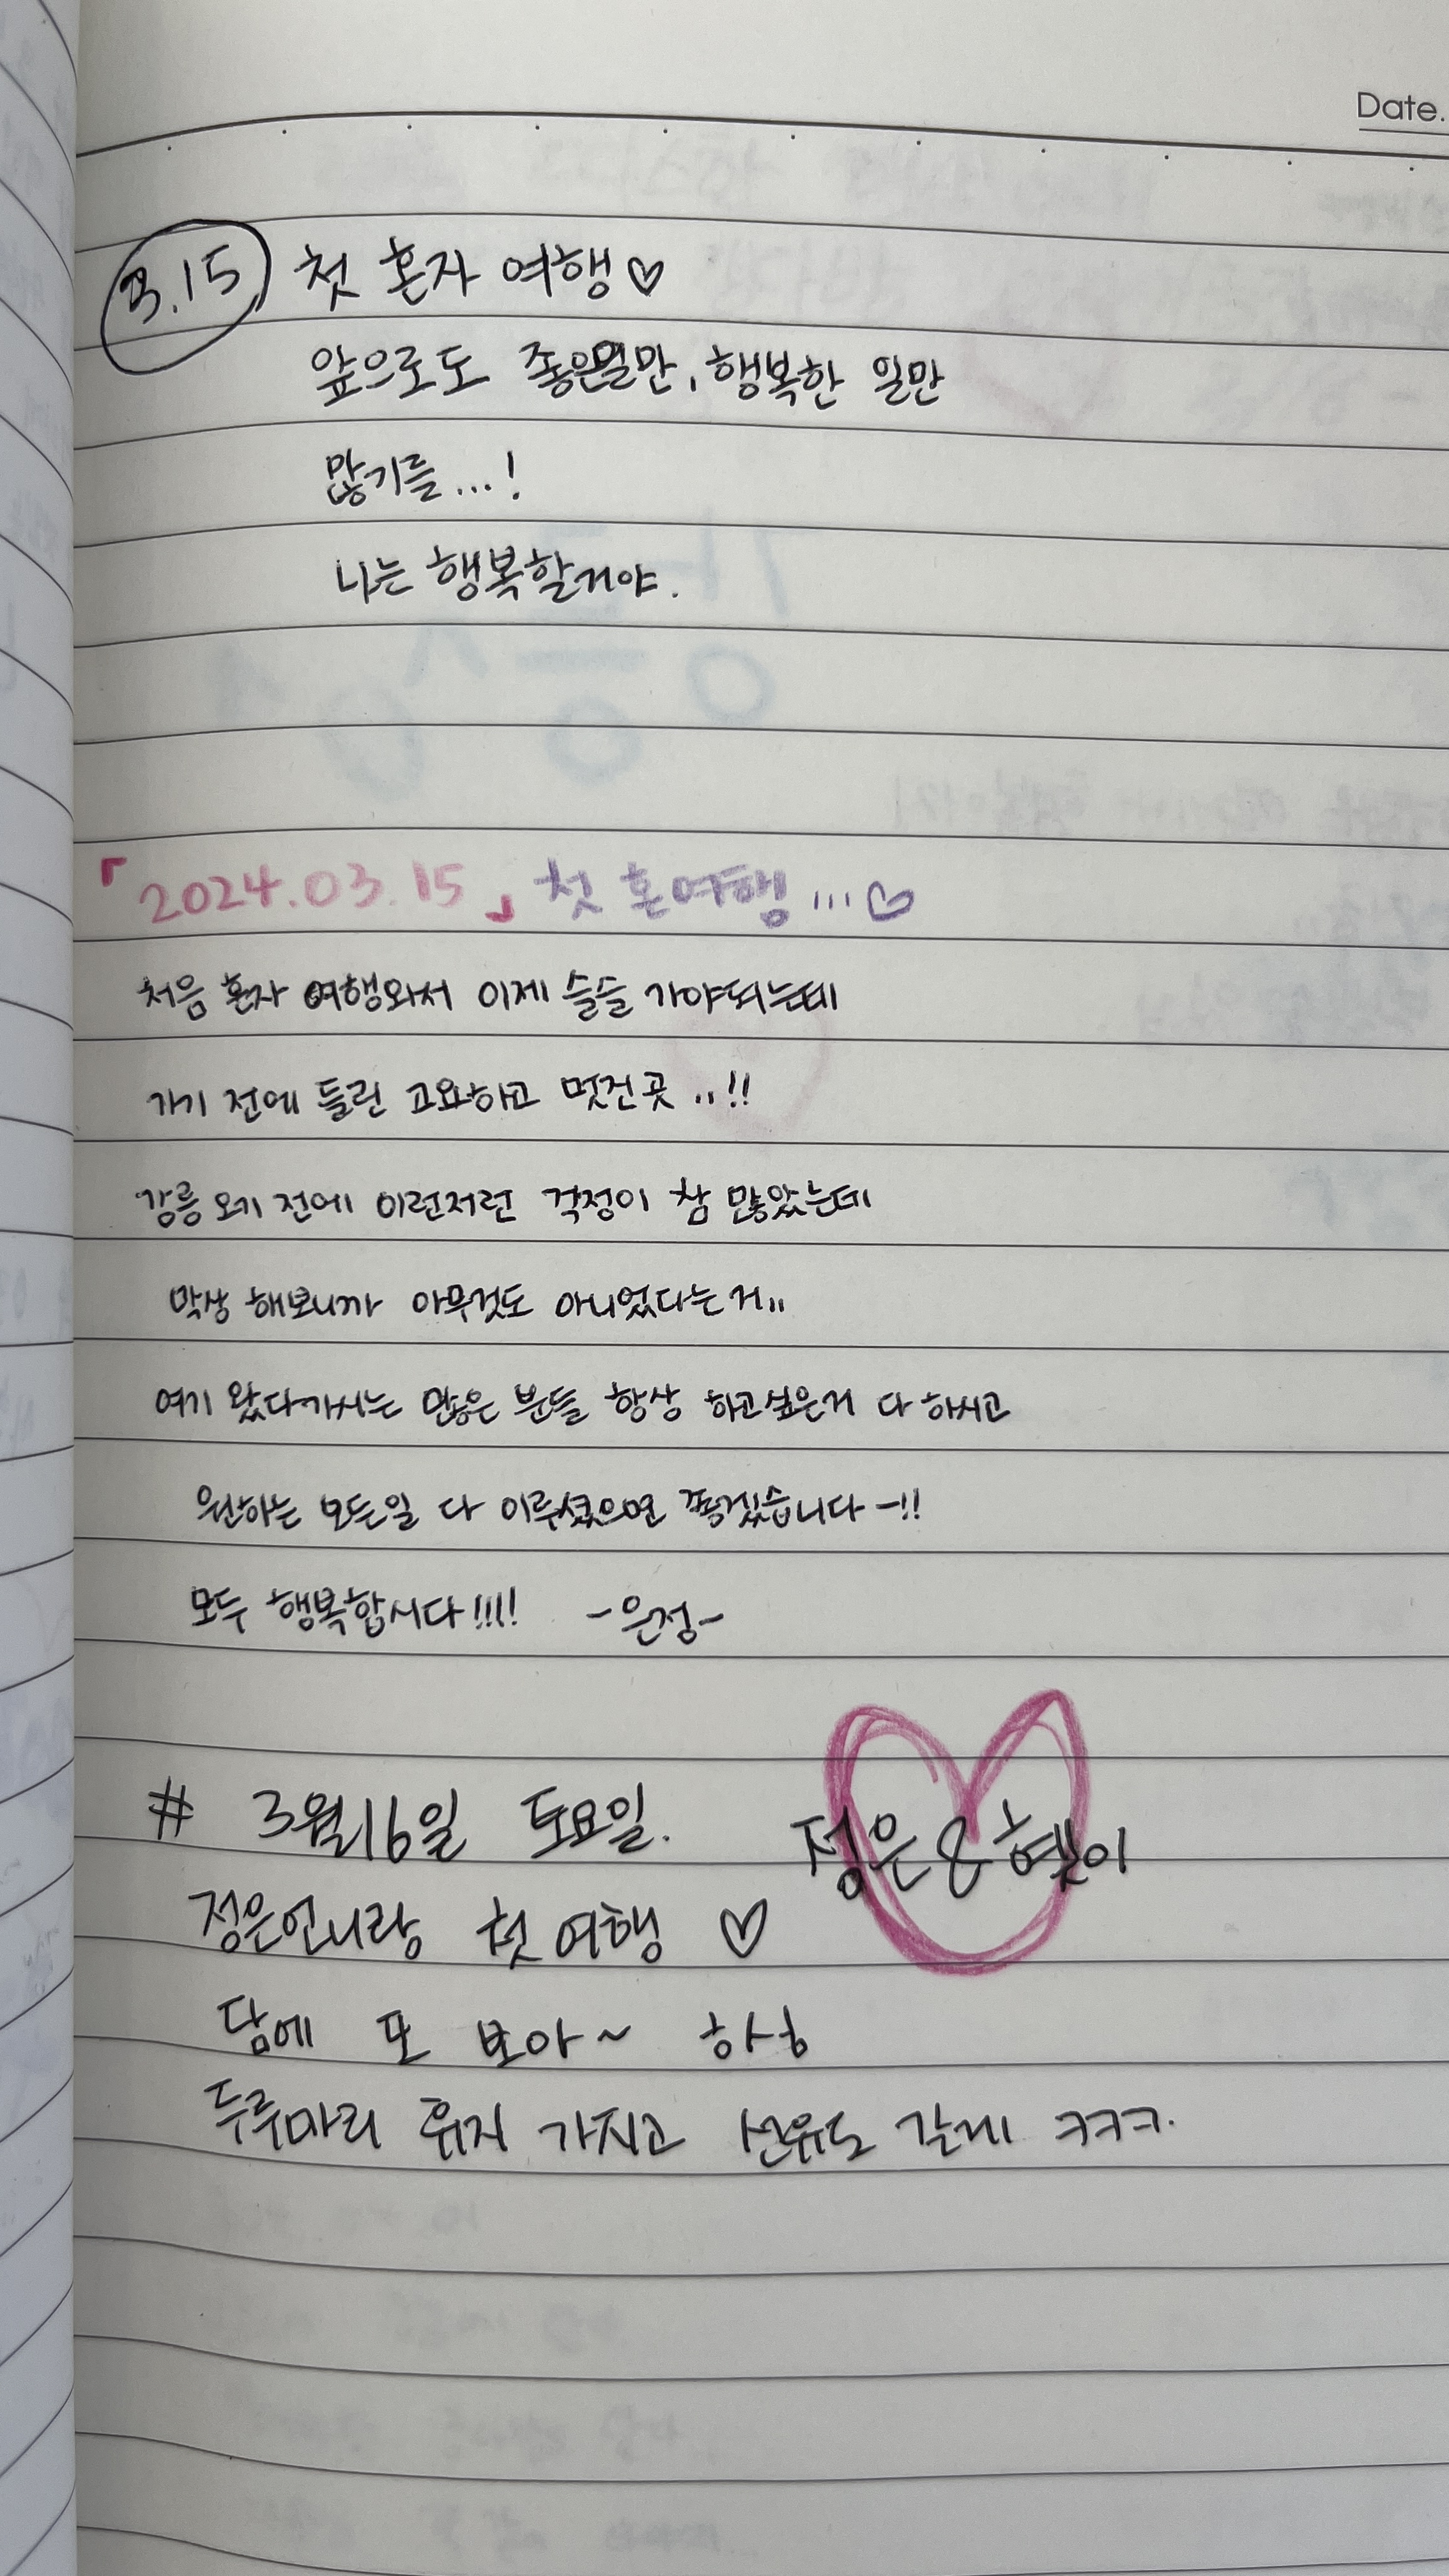 Date.
3.15 첫 혼자 여행♡
앞으로도 좋은일만, 행복한 일만
많기를...!
나는 행복할거야.
「2024.03.15」 첫 혼여행...♡
처음 혼자 여행와서 이제 슬슬 가야되는데
가기 전에 들린 고요하고 멋진곳..!!
강릉 오기 전에 이런저런 걱정이 참 많았는데
막상 해보니까 아무것도 아니었다는거..
여기 왔다가시는 많은 분들 항상 하고싶은거 다 하시고
원하는 모든일 다 이루셨으면 좋겠습니다-!!
모두 행복합시다!!!! -은정-
# 3월16일 토요일. 정은&혜이
정은언니랑 첫여행 ♡
담에 또 보아~ 항상
두루마리 휴지 가지고 선유도 갈게 ㅋㅋㅋ.